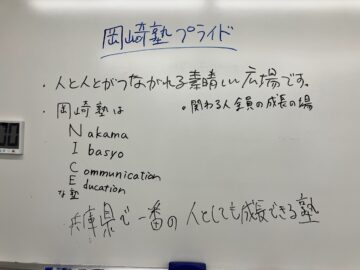 岡崎塾プライド
・人と人とがつながれる素晴しい広場です。
・岡崎塾は
・関わる人全員の成長の場
Nakama
Ibasyo
Communication
Education
な塾
兵庫県で一番の人としても成長できる塾